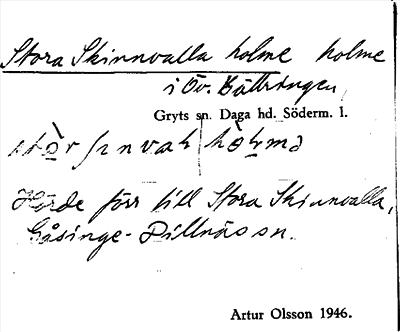 Stora Skinnvalla holme holme
i Öv. Kältringen
Gryts sn. Daga hd. Söderm. l.
Hörde förr till Stora Skinnvalla,
Gåsinge-Dillnäs sn.
Artur Olsson 1946.